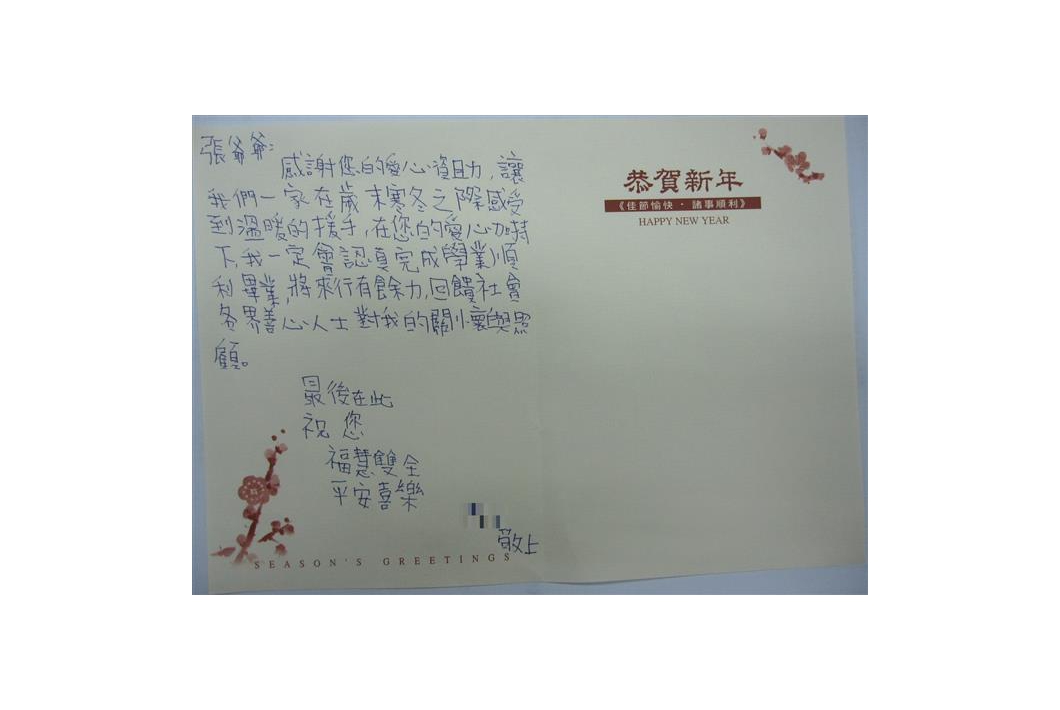 張爺爺:
感謝您的愛心資助力,讓
我們一家在歲末寒冬之際感受
到溫暖的援手,在您的愛心加持
下,我一定會認真完成學業順
利畢業,將來行有餘力,回饋社會
各界善心人士對我的關懷與照
顧。
最後在此
祝 您
福慧雙全
平安喜樂
敬上
SEASON'S GREETINGS
恭賀新年
《佳節愉快・諸事順利》
HAPPY NEW YEAR